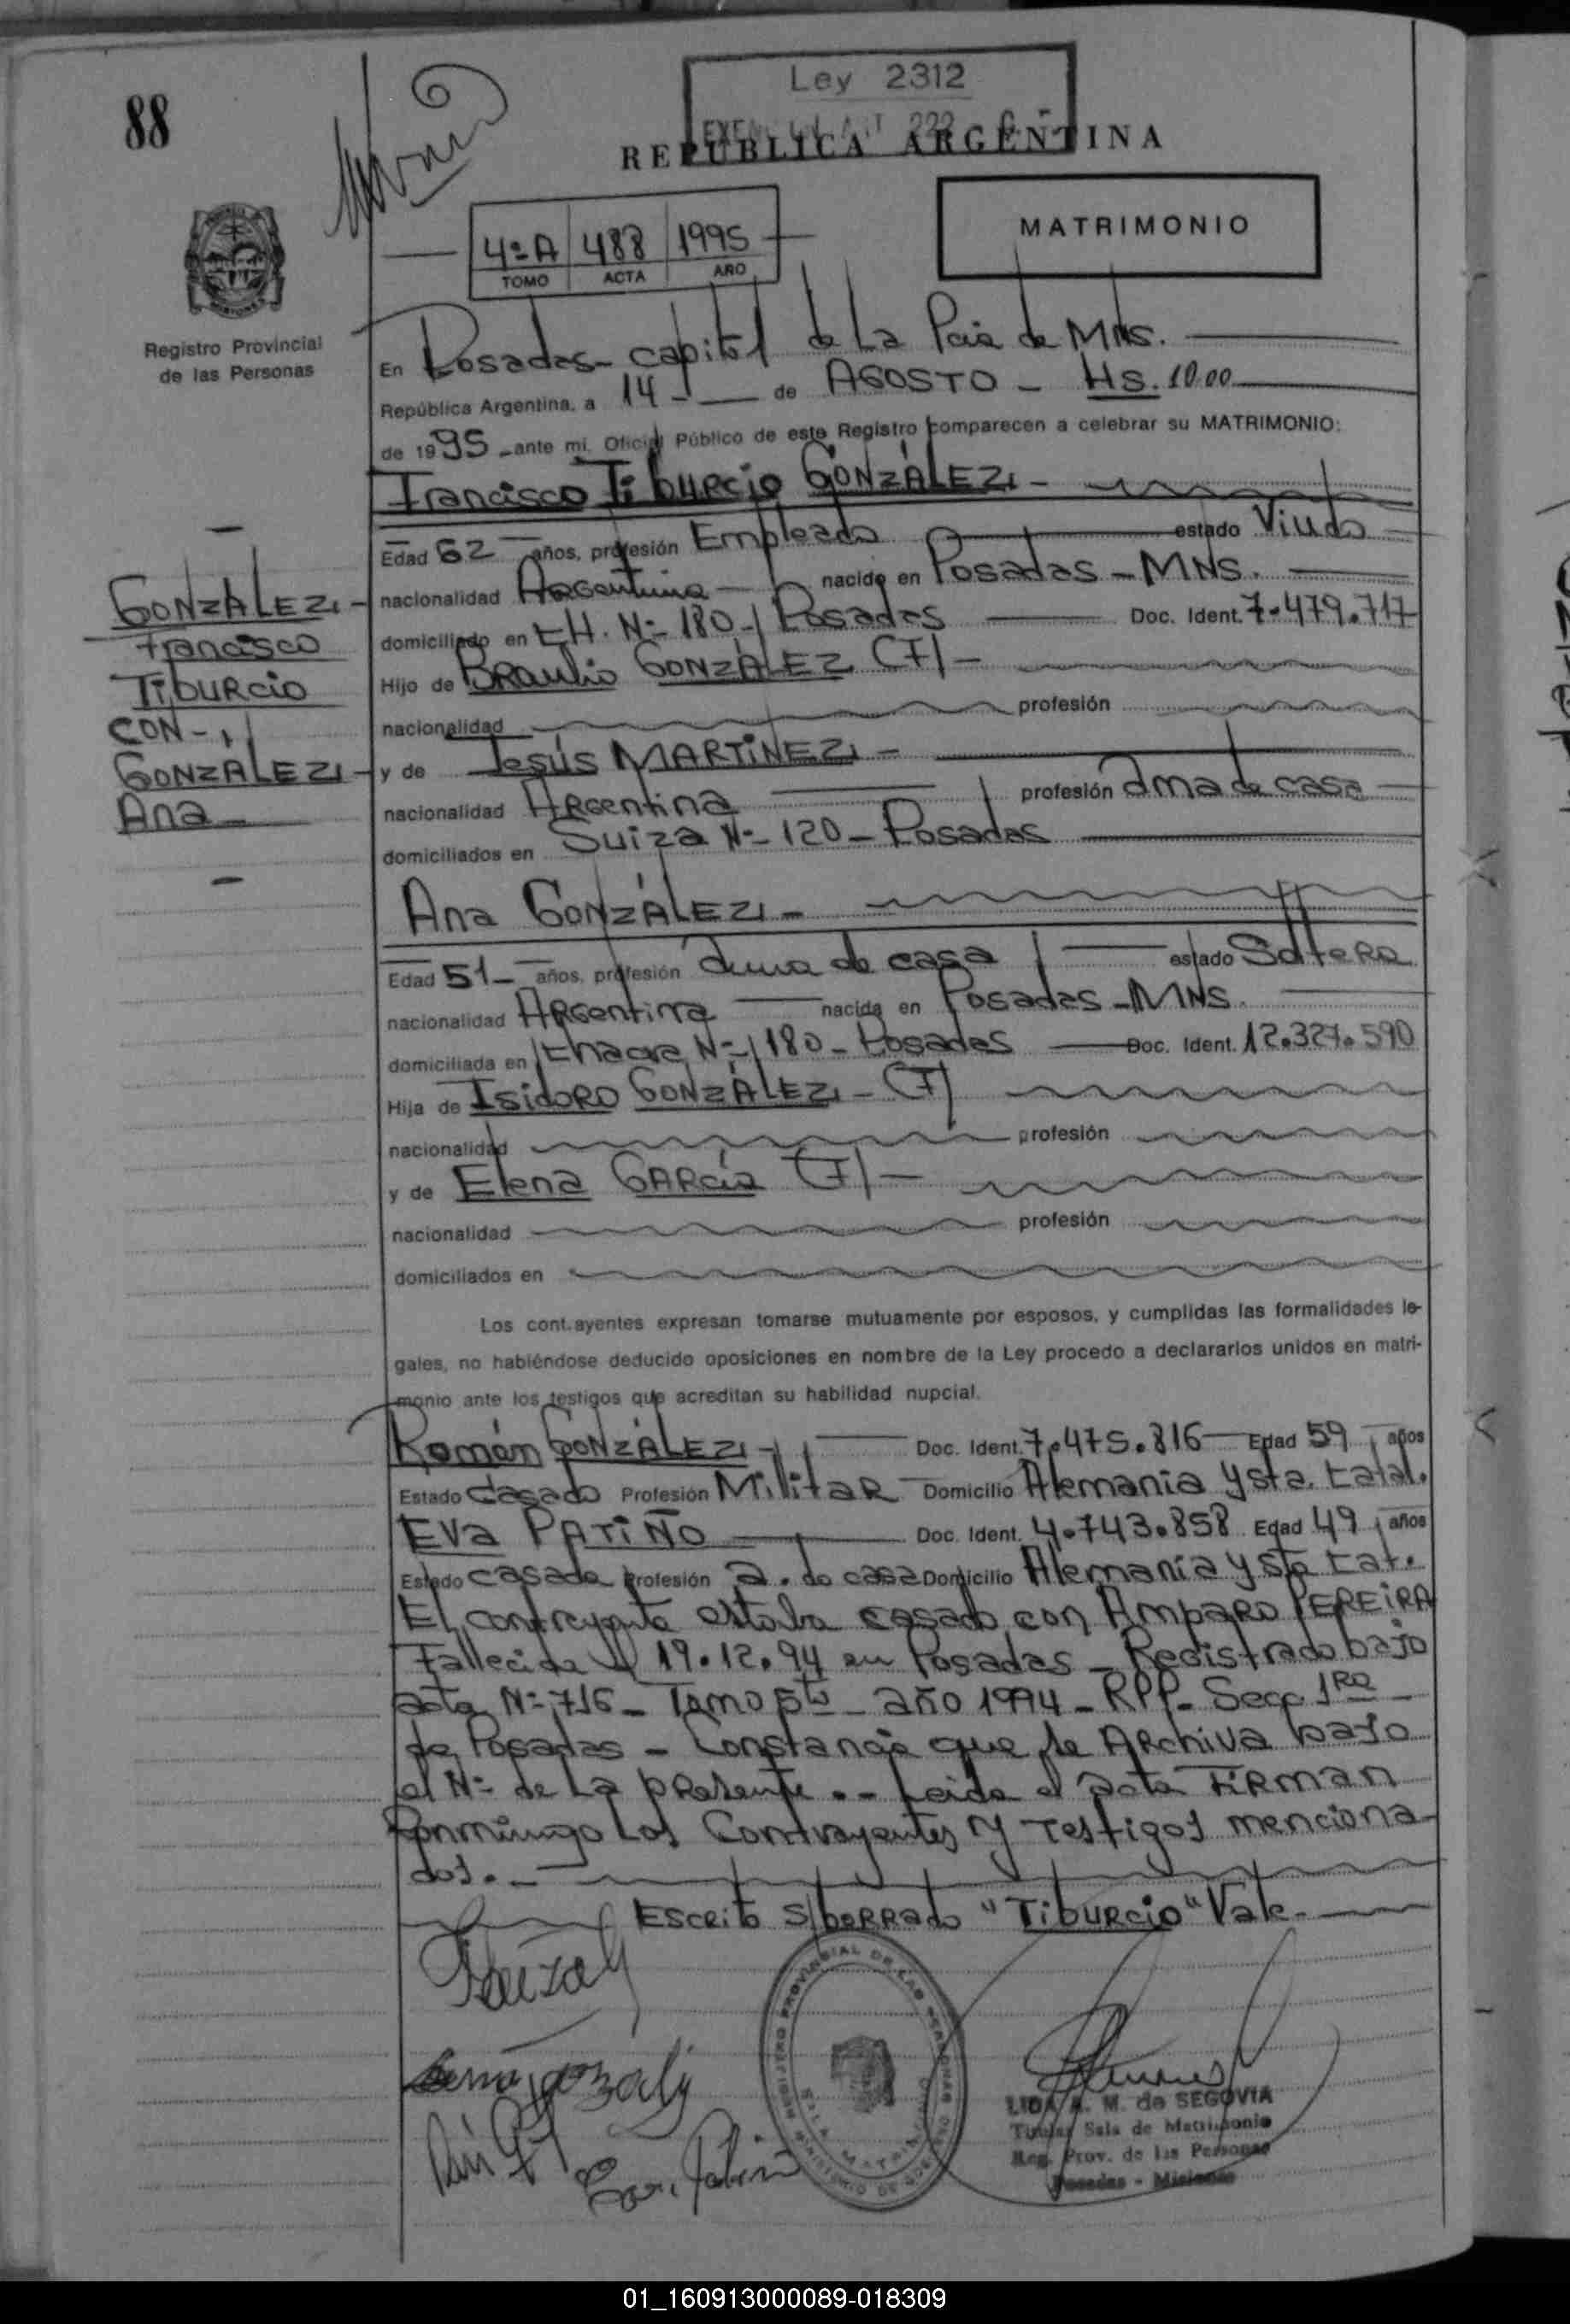 88
Ley 2312
REPUBLICA ARGENTINA
MATRIMONIO
4º A 488 1995
TOMO ACTA AÑO
Registro Provincial
de las Personas
En Posadas - capital de La Pcia de MNS.
República Argentina, a 14 - de AGOSTO - Hs. 10.00
de 1995 - ante mi, Oficial Público de este Registro comparecen a celebrar su MATRIMONIO:
Francisco Tiburcio GONZÁLEZ -
Edad 62 años, profesión Empleado estado Viudo
nacionalidad Argentina nacido en Posadas - MNS.
domiciliado en CH. Nº 180 - Posadas Doc. Ident. 7.479.717
Hijo de Braulio GONZÁLEZ (F) -
nacionalidad profesión
y de Jesús MARTÍNEZ -
nacionalidad Argentina profesión ama de casa
domiciliados en Suiza Nº 120 - Posadas
GONZALEZ -
Francisco
Tiburcio
CON -
GONZALEZ -
Ana -
Ana GONZÁLEZ -
Edad 51 - años, profesión ama de casa estado Soltera
nacionalidad Argentina nacida en Posadas - MNS.
domiciliada en Chacra Nº 180 - Posadas Doc. Ident. 12.327.590
Hija de Isidoro GONZÁLEZ - (F)
nacionalidad profesión
y de Elena GARCÍA (F) -
nacionalidad profesión
domiciliados en
Los contrayentes expresan tomarse mutuamente por esposos, y cumplidas las formalidades le-
gales, no habiéndose deducido oposiciones en nombre de la Ley procedo a declararlos unidos en matri-
monio ante los testigos que acreditan su habilidad nupcial.
Román GONZÁLEZ - Doc. Ident. 7.475.816 Edad 59 años
Estado Casado Profesión Militar Domicilio Alemania y Sta. Catal.
Eva PATIÑO Doc. Ident. 4.743.858 Edad 49 años
Estado Casada Profesión a. de casa Domicilio Alemania y Sta Cat.
El contrayente estaba casado con Amparo PEREIRA
Fallecida el 19.12.94 en Posadas - Registrado bajo
acta Nº 716 - Tomo 5to - año 1994 - RPP - Secc. 1ra
de Posadas - Constancia que se Archiva bajo
el Nº de La presente. - Leida el acta Firman
conmigo Los Contrayentes y Testigos menciona-
dos. -
Escrito s/borrado "Tiburcio" Vale -
REGISTRO PROVINCIAL DE LAS PERSONAS
LIDA A. M. de SEGOVIA
Titular Sala de Matrimonio
Reg. Prov. de las Personas
Posadas - Misiones
01_160913000089-018309